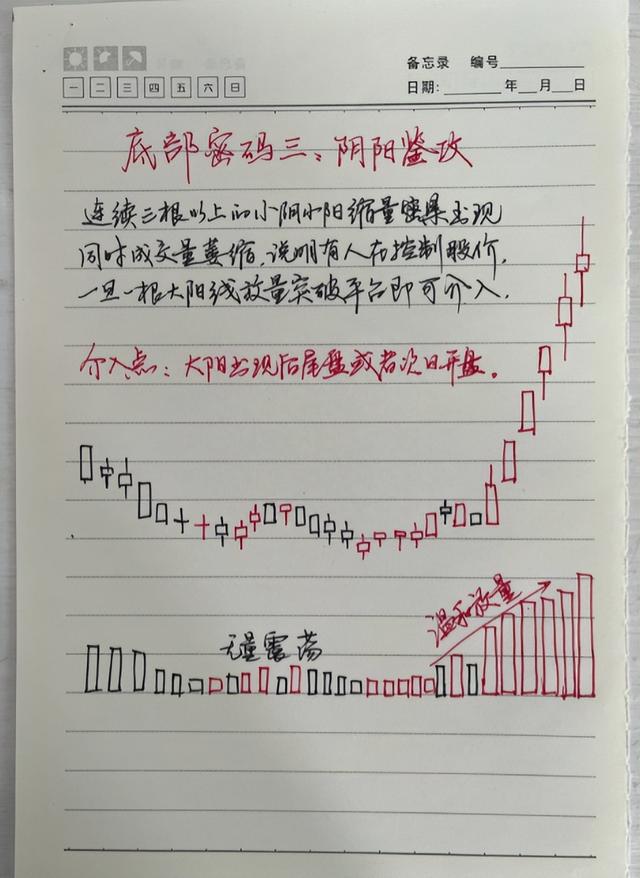 备忘录 编号
一 二 三 四 五 六 日
日期: 年 月 日
底部密码三:阴阳鉴攻
连续三根以上的小阴小阳缩量密集出现
同时成交量萎缩,说明有人在控制股价,
一旦一根大阳线放量突破平台即可介入.
介入点: 大阳出现后尾盘或者次日开盘.
温和放量
无量震荡